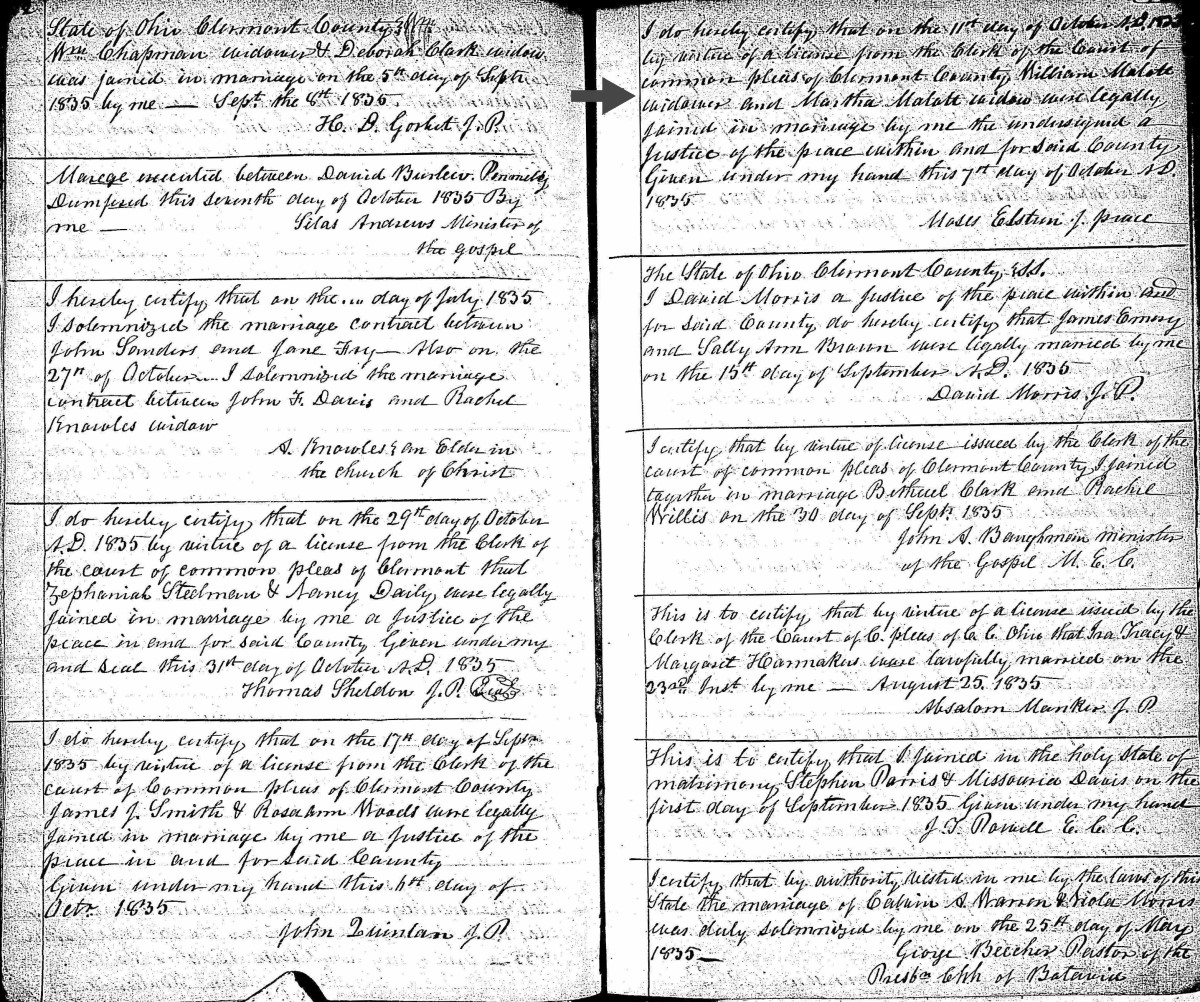 State of Ohio Clermont County
Wm Chapman widower & Deborah Clark widow
was joined in marriage on the 5th day of Sept.
1835 by me — Sept. the 8th 1835.
H. D. Gorbet J. P.
Marege executed between David Burlew. Permelia
Dumford this seventh day of October 1835 By
me — Silas Andrews Minister of
the Gospel
I hereby certify that on the ... day of July 1835
I solemnized the marriage contract between
John Sanders and Jane Fry — Also on the
27th of October ... I solemnized the marriage
contract between John F. Davis and Rachel
Knowles widow
A. Knowles an Elder in
the church of Christ
I do hereby certify that on the 29th day of October
A.D. 1835 by virtue of a license from the Clerk of
the court of common pleas of Clermont that
Zephaniah Steelman & Nancy Daily were legally
joined in marriage by me a Justice of the
peace in and for said County Given under my
and Seal this 31st day of October A.D. 1835
Thomas Sheldon J. P. Seal
I do hereby certify that on the 17th day of Sept.
1835 by virtue of a license from the Clerk of the
court of Common pleas of Clermont County
James J. Smith & Rosaann Woods were legally
joined in marriage by me a Justice of the
peace in and for said County
Given under my hand this day of
Octr. 1835
John Quinlan J. P.
I do hereby certify that on the 11th day of October A.D.
by virtue of a license from the Clerk of the Court of
common pleas of Clermont County William Malott
widower and Martha Malott widow were legally
joined in marriage by me the undersigned a
Justice of the peace within and for said County
Given under my hand this 7th day of October A.D.
1835
Moses Elstun J. peace
The State of Ohio Clermont County, SS.
I David Morris a Justice of the peace within and
for said County do hereby certify that James Emery
and Sally Ann Brown were legally married by me
on the 15th day of September A.D. 1835
David Morris J. P.
I certify that by virtue of license issued by the Clerk of the
court of common pleas of Clermont County I joined
together in marriage Bethuel Clark and Rachel
Willis on the 30 day of Sept. 1835
John A. Baughman minister
of the Gospel M. E. C.
This is to certify that by virtue of a license issued by the
Clerk of the Court of C. pleas of C. C. Ohio that Ira Tracy &
Margaret Hannakers were lawfully married on the
23rd Inst by me — August 25. 1835
Absalom Manker J. P
This is to certify that I joined in the holy State of
matrimony Stephen Parris & Missouria Davis on the
first day of September 1835 Given under my hand
J. T. Powell E. C. C.
I certify that by authority vested in me by the laws of this
State the marriage of Calvin A Warren & Viola Morris
was duly solemnized by me on the 25th day of May
1835 — George Beecher Pastor of the
Presbn Chh of Batavia